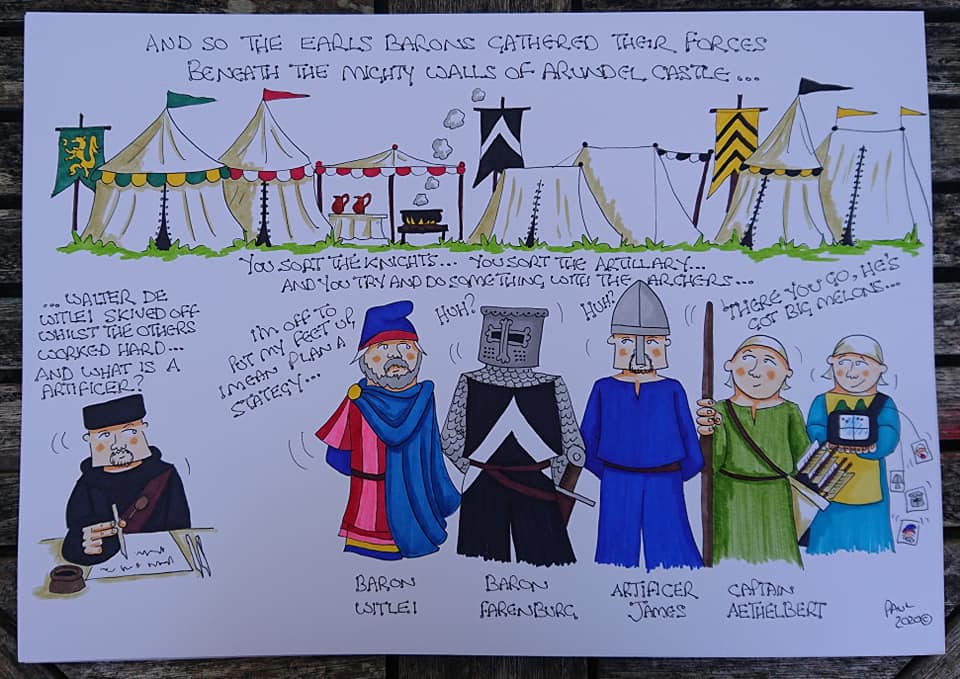 AND SO THE EARLS BARONS GATHERED THEIR FORCES
BENEATH THE MIGHTY WALLS OF ARUNDEL CASTLE...
YOU SORT THE KNIGHTS... YOU SORT THE ARTILLARY...
AND YOU TRY AND DO SOMETHING WITH THE ARCHERS...
...WALTER DE
WITLEI SKIVED OFF
WHILST THE OTHERS
WORKED HARD...
AND WHAT IS A
ARTIFICER?
I'M OFF TO
PUT MY FEET UP,
I MEAN PLAN A
STATEGY...
HUH?
HUH?
THERE YOU GO, HE'S
GOT BIG MELONS...
BARON
WITLEI
BARON
FARENBURG
ARTIFICER
JAMES
CAPTAIN
AETHELBERT
PAUL
2020©